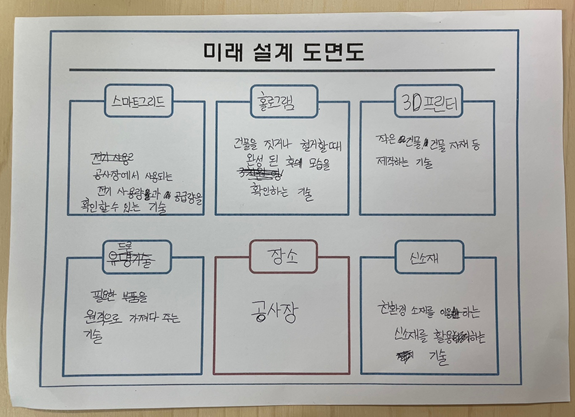 미래 설계 도면도
스마트그리드
전기 사용
공사장에서 사용되는
전기 사용량과 공급량을
확인할 수 있는 기술
홀로그램
건물을 짓거나 철거할 때
완성 된 후의 모습을
확인하는 기술
3D 프린터
작은 건물, 건물 자재 등
제작하는 기술
드론
유명기술
필요한 부품을
원격으로 가져다 주는
기술
장소
공사장
신소재
친환경 소재를 이용하는
신소재를 활용하는
기술